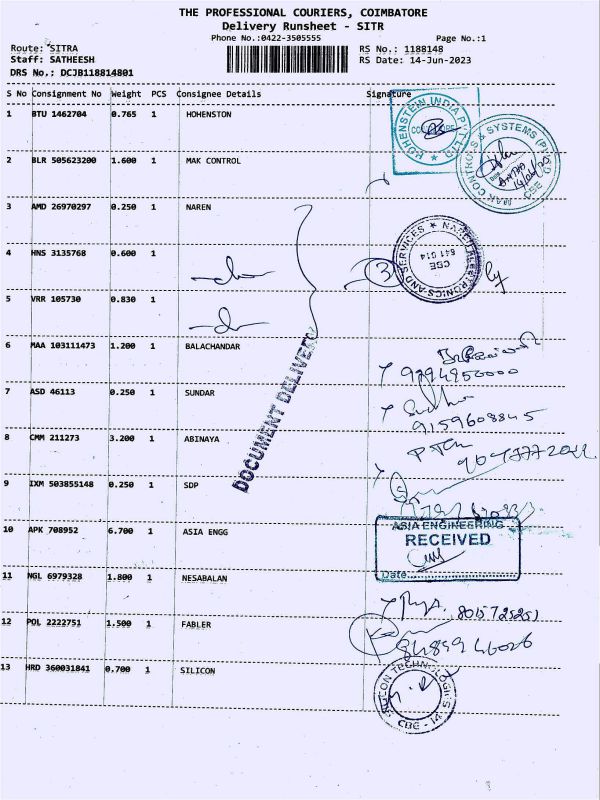 THE PROFESSIONAL COURIERS, COIMBATORE
Delivery Runsheet - SITR
Phone No.:0422-3505555 Page No.:1
Route: SITRA RS No.: 1188148
Staff: SATHEESH RS Date: 14-Jun-2023
DRS No.: DCJB118814801
S No Consignment No Weight PCS Consignee Details Signature
1 BTU 1462704 0.765 1 HOHENSTON
HOHENSTEIN INDIA PVT LTD
2 BLR 505623200 1.600 1 MAK CONTROL
MAK CONTROLS & SYSTEMS (P) LTD
CBE
3 AMD 26970297 0.250 1 NAREN
4 HNS 3135768 0.600 1
3
CBE
641 014
5 VRR 105730 0.830 1
6 MAA 103111473 1.200 1 BALACHANDAR
DOCUMENT DELIVERY
7 ASD 46113 0.250 1 SUNDAR
9159608845
8 CMM 211273 3.200 1 ABINAYA
9 IXM 503855148 0.250 1 SDP
10 APK 708952 6.700 1 ASIA ENGG
ASIA ENGINEERING
RECEIVED
Date
11 NGL 6979328 1.800 1 NESABALAN
8015725251
12 POL 2222751 1.500 1 FABLER
13 HRD 360031841 0.700 1 SILICON
CBE - 14